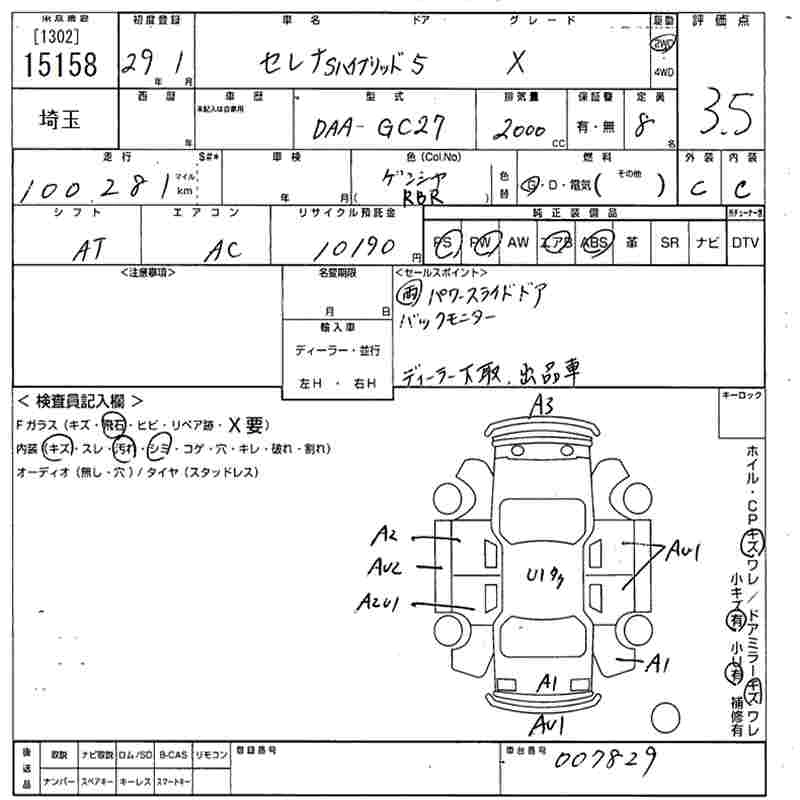 東京業者 初度登録 車名 ドア グレード 駆動 評価点
[1302]
15158 29年 1月 セレナ Sハイブリッド 5 X 2WD 4WD 3.5
西暦 車歴 型式 排気量 保証書 定員
未記入は自家用
埼玉 年 DAA-GC27 2000 CC 有・無 8名
走行 S#* 車検 色(Col.No) 燃料 外装 内装
100,281 マイル km 年 月 ( RBR ) 色替 G・D・電気( その他 ) C C
シフト エアコン リサイクル預託金 純正装備品
AT AC 10190円 PS PW AW エアB ABS 革 SR ナビ DTV
<注意事項> 名変期限 <セールスポイント>
月 日 両 パワースライドドア
輸入車 バックモニター
ディーラー・並行
左H ・ 右H ディーラー下取、出品車
< 検査員記入欄 > キーロック
Fガラス(キズ・飛石・ヒビ・リペア跡・X要)
内装(キズ・スレ・汚れ・シミ・コゲ・穴・キレ・破れ・割れ)
オーディオ(無し・穴)/タイヤ(スタッドレス)
A3
A2
AU2
A2U1
U1
AU1
A1
A1
AU1
ホイル・CPキズ・ワレ/ドアミラーキズ・ワレ
小キズ有 小U有 補修有
後送品 取説 ナビ取説 ロム/SD B-CAS リモコン 登録番号 車台番号
ナンバー スペアキー キーレス スマートキー 007829